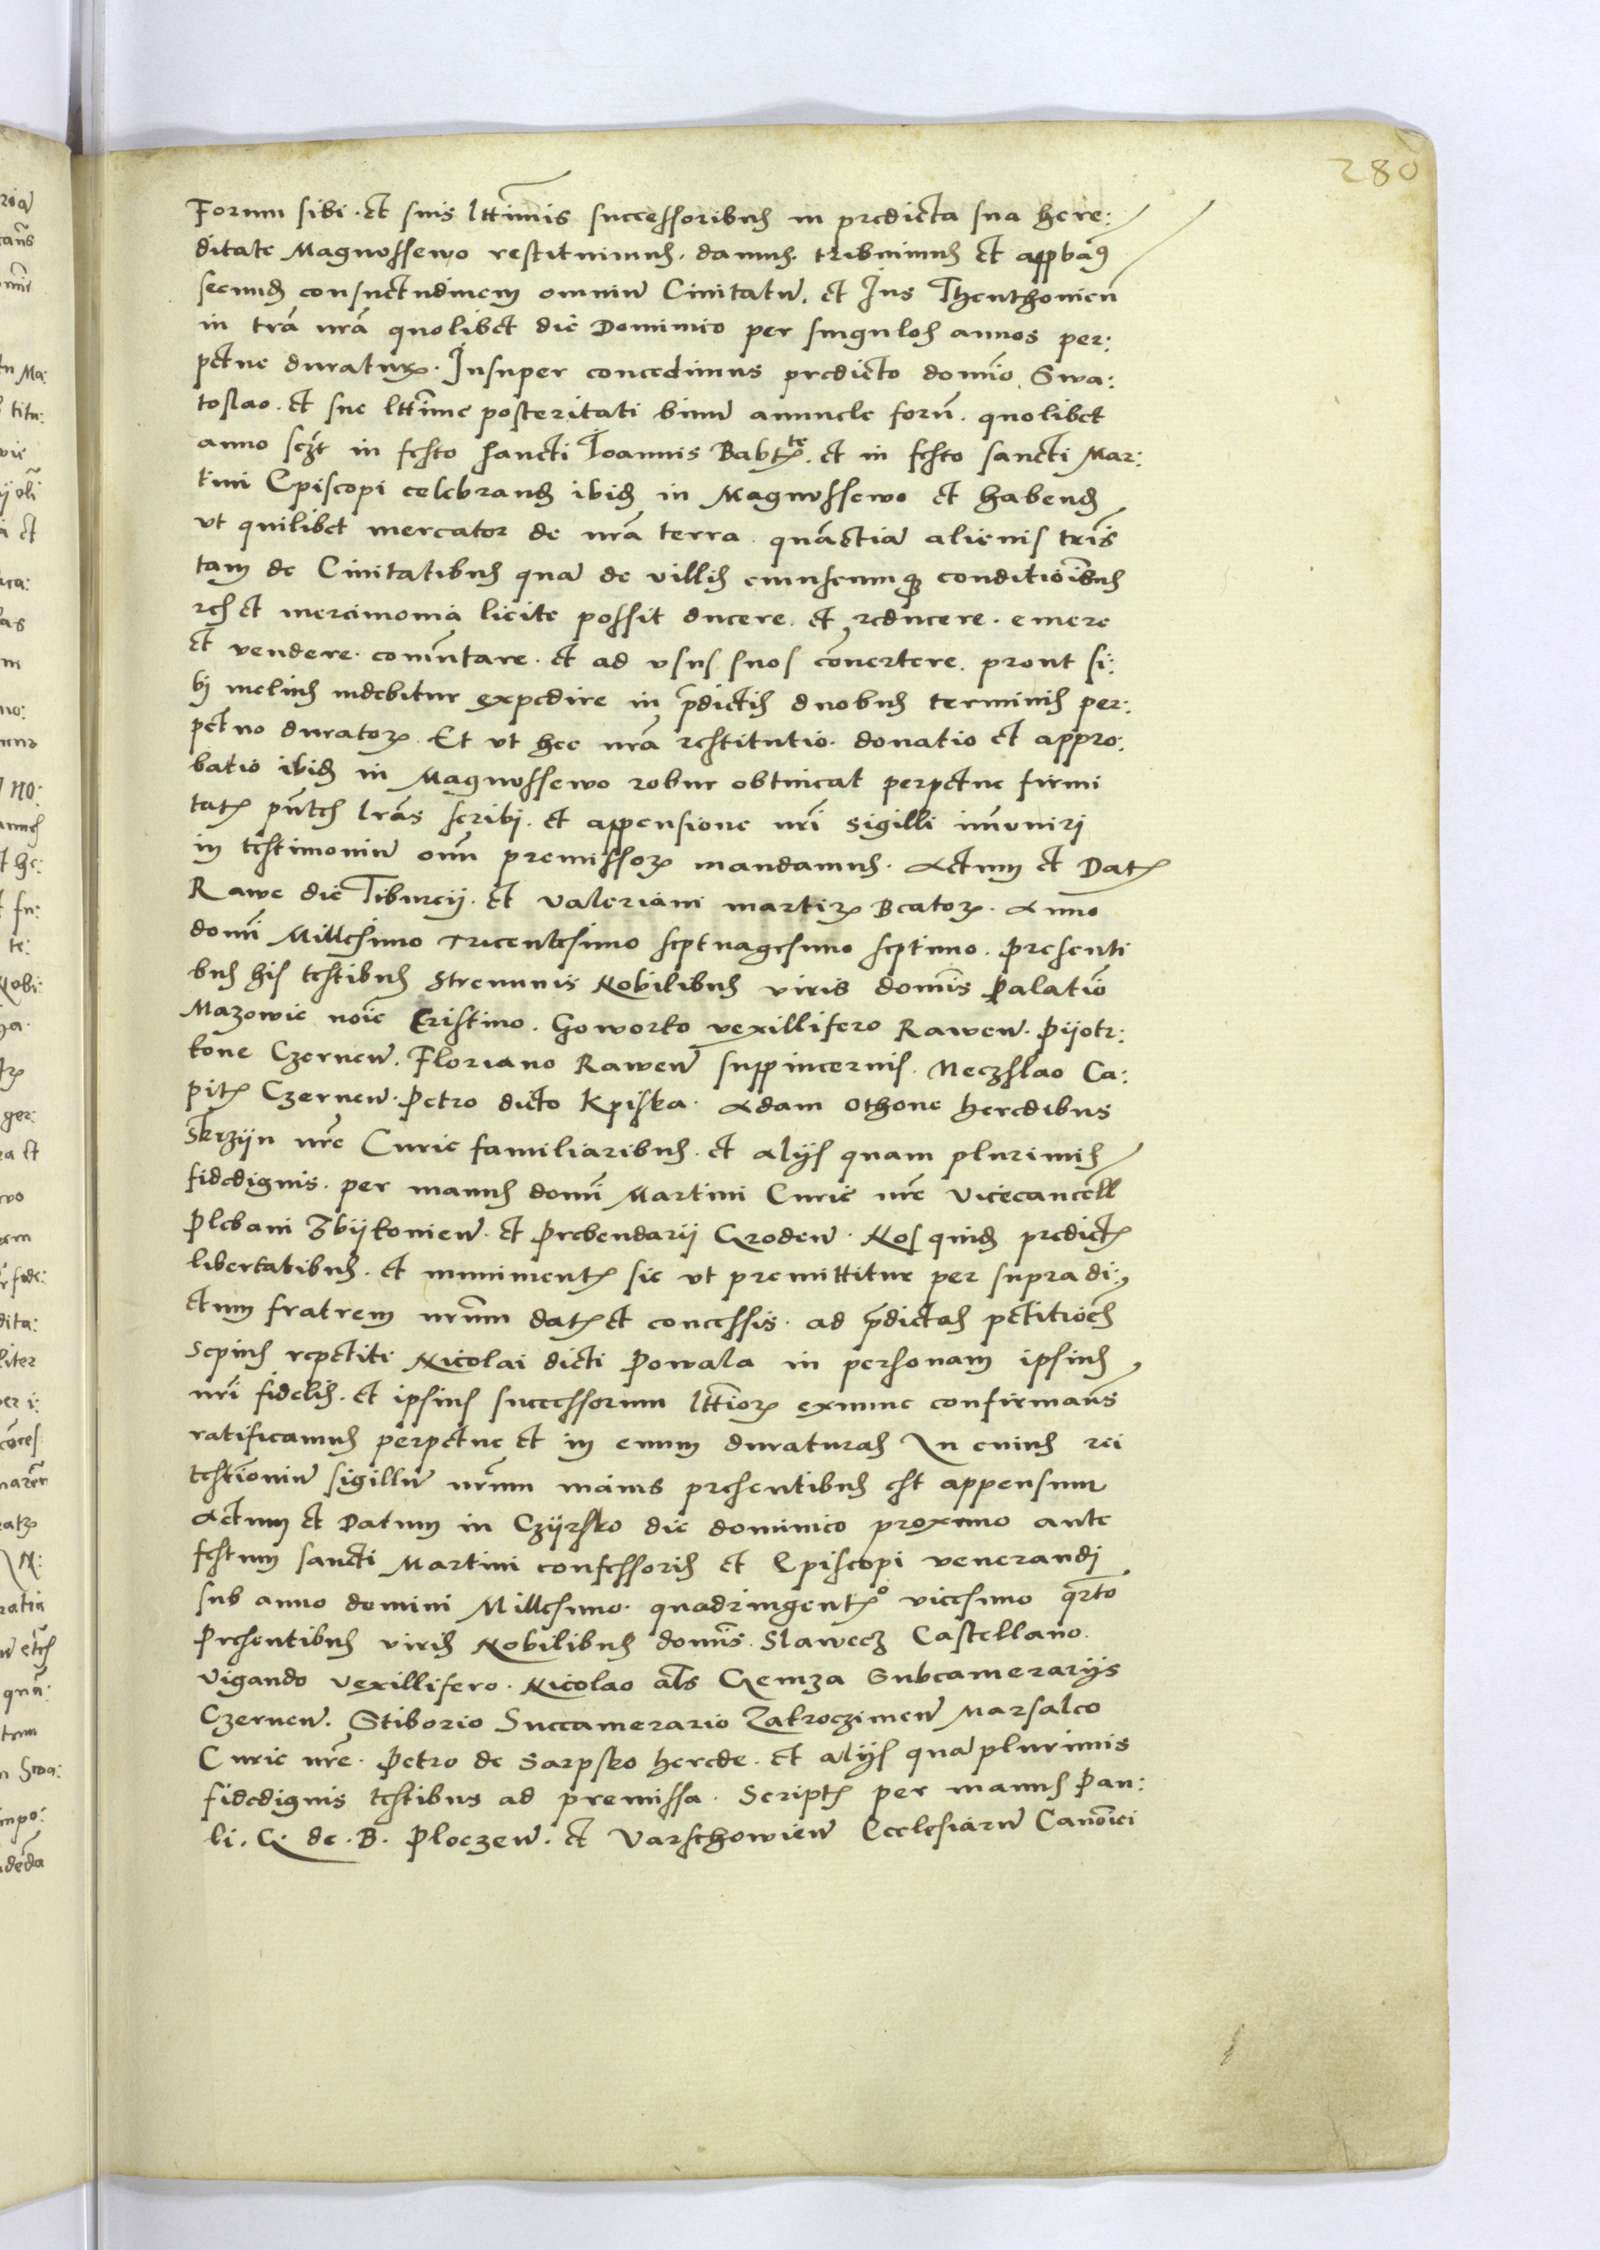 280
Forum sibi. et suis lttimis successoribus in predicta sua here:
ditate Magnossewo restituimus. damus. tribuimus et appbam9
secund consuetudinem omniu Ciuitatu. et Jus Theuthonicu
in tra nra quolibet die Dominico per singulos annos per:
petue duratur. Insuper concedimus predicto domio Swa:
toslao. et sue lttime posteritati binu annuale foru. quolibet
anno sczt in festo sancti Joannis Babtte. et in festo sancti Mar:
tini Episcopi celebrand ibid in Magnossewo et habend
vt quilibet mercator de nra terra. qua etia alienis tris
tam de Ciuitatibus qua de villis cuiuscumq conditioibus
res et mercimonia licite possit ducere. et reducere. emere
et vendere. comutare. et ad vsus suos conuertere. prout si:
bi melius videbitur expedire in pdictis duobus terminis per:
petuo durator. Et vt hec nra restitutio. donatio et appro:
batio ibid in Magnossewo robur obtineat perpetue firmi
tat pntes lras scribi. et appensione nri sigilli imuniri
in testimoniu oim premissor mandamus. Actum et Dat
Rawe die Tiburcij. et Valeriani martir Beator. Anno
domi Millesimo Tricentesimo septuagesimo septimo. Presenti
bus his testibus Strenuuis Nobilibus viris domis Palatio
Mazowie noie Cristino. Goworko vexillifero Rawen. Pijotr:
kone Czernen. Floriano Rawen suppincernis. Neczslao Ca:
pit Czernen. Petro dicto Kpiska. Adam Othone heredibus
Skrzijn nre Curie familiaribus. et alijs quam plurimis
fidedignis. per manus domi Martini Curie nre Vicecancell
Plebani Zbijkonien. et Prebendarij Groden. Nos quid predict
libertatibus. et muniment sic vt premittitur per supradi:
ctum fratrem nrum dat et concessis. ad pdictas petitioes
Sepius repetite Nicolai dicti Powala in personam ipsius
nri fidelis. et ipsius successorum lttior exnunc confirmans
ratificamus perpetue et in euum duraturas In cuius rei
testioniu sigillu nrum maius presentibus est appensum
Actum et Datum in Czijrsko die dominico proximo ante
festum sancti Martini confessoris et Episcopi venerandi
sub anno domini Millesimo. quadringento vicesimo qrto
Presentibus viris Nobilibus domis. Slawecz Castellano.
Vigando vexillifero. Nicolao als Gemza Subcamerarijs
Czernen. Stiborio Succamerario Zakroczimen Marsalco
Curie nre. Petro de Sarpsko herede. et alijs qua plurimis
fidedignis testibus ad premissa. Script per manus Pau:
li. G. de. B. Ploczen. et Varschowien Ecclesiaru Canoici